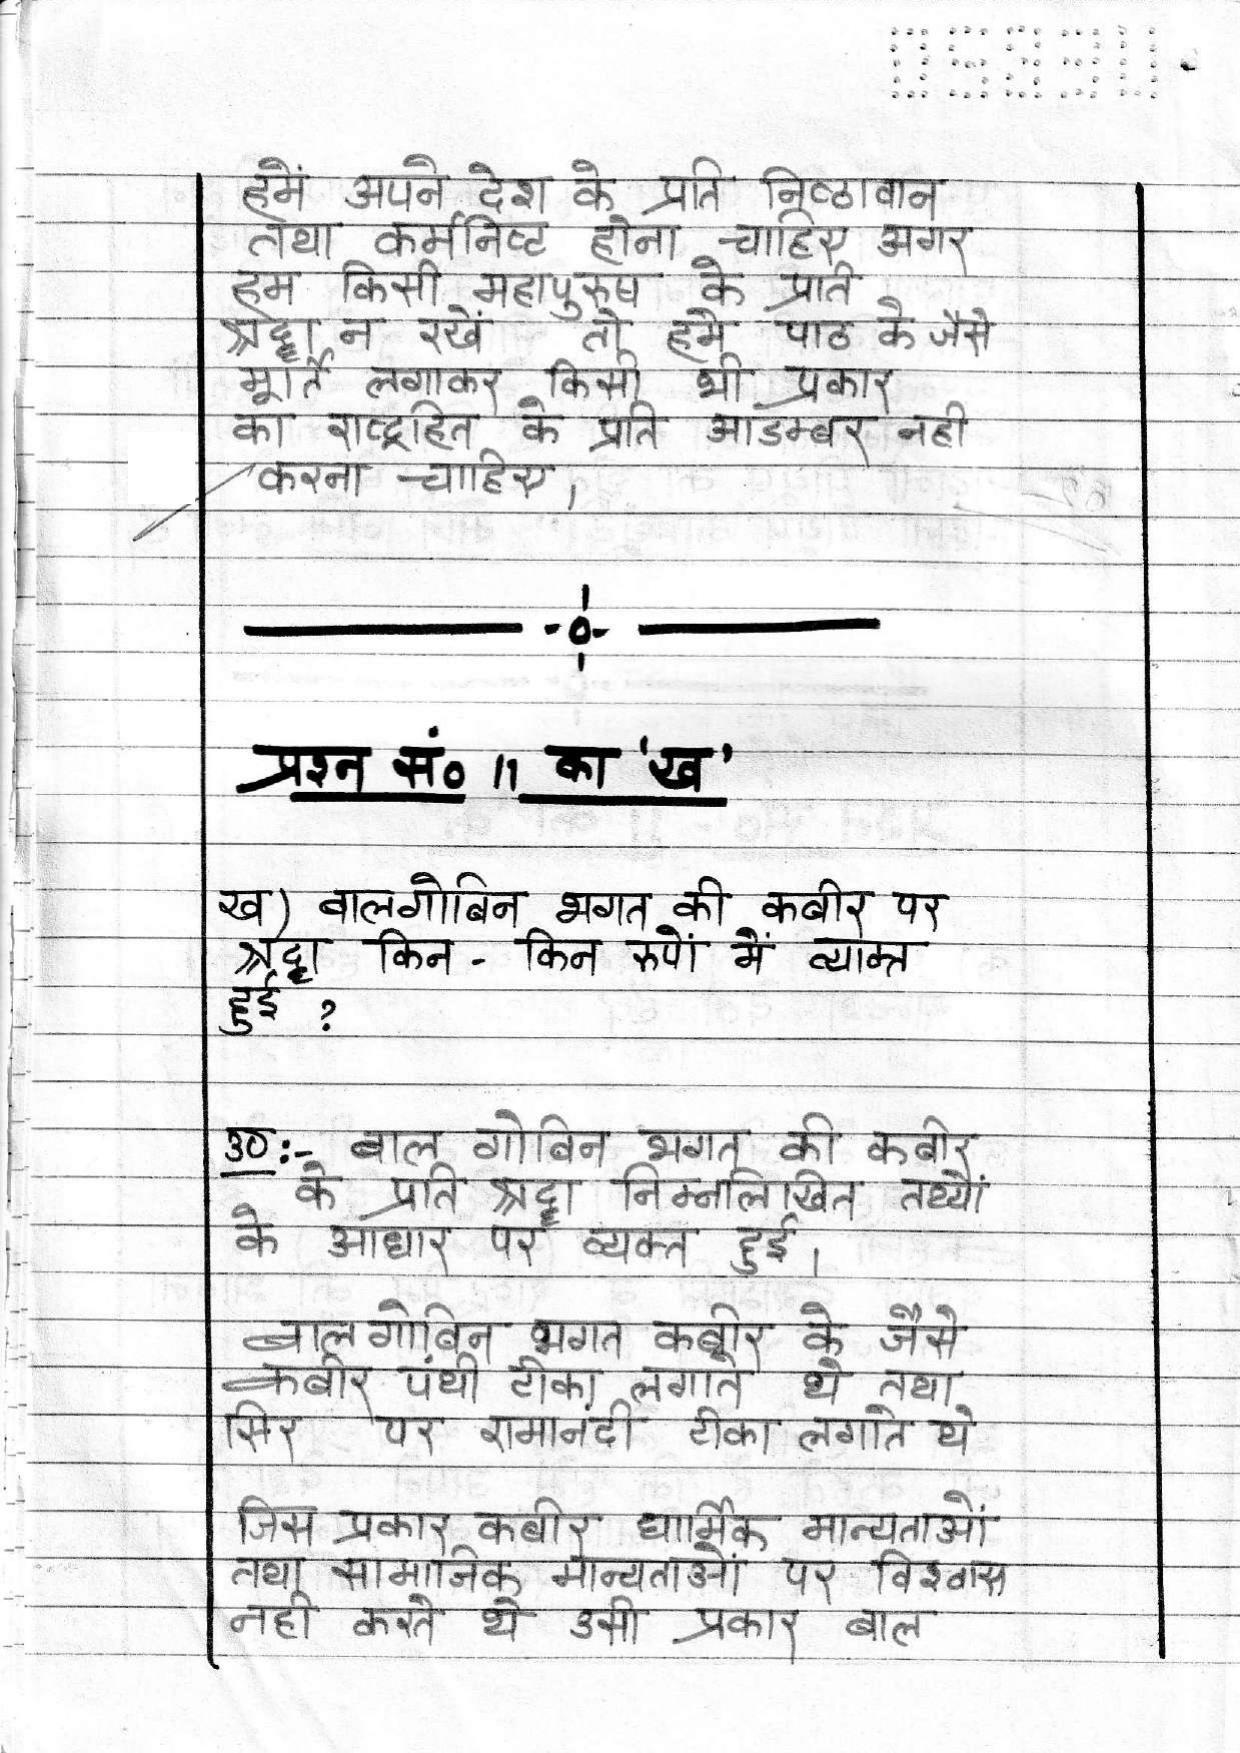 हमें अपने देश के प्रति निष्ठावान
तथा कर्मनिष्ट होना चाहिए अगर
हम किसी महापुरुष के प्रति
श्रद्धा न रखें तो हमे पाठ के जैसे
मूर्ति लगाकर किसी भी प्रकार
का राष्ट्रहित के प्रति आडम्बर नही
करना चाहिए।
प्रश्न सं० 11 का 'ख'
ख) बालगोबिन भगत की कबीर पर
श्रद्धा किन - किन रुपों में व्याक्त
हुई ?
उ० :- बाल गोबिन भगत की कबीर
के प्रति श्रद्धा निम्नलिखित तथ्यों
के आधार पर व्यक्त हुई।
बालगोबिन भगत कबीर के जैसे
कबीर पंथी टीका लगाते थे तथा
सिर पर रामानंदी टीका लगाते थे
जिस प्रकार कबीर धार्मिक मान्यताओं
तथा सामाजिक मान्यताओं पर विश्वास
नही करते थे उसी प्रकार बाल